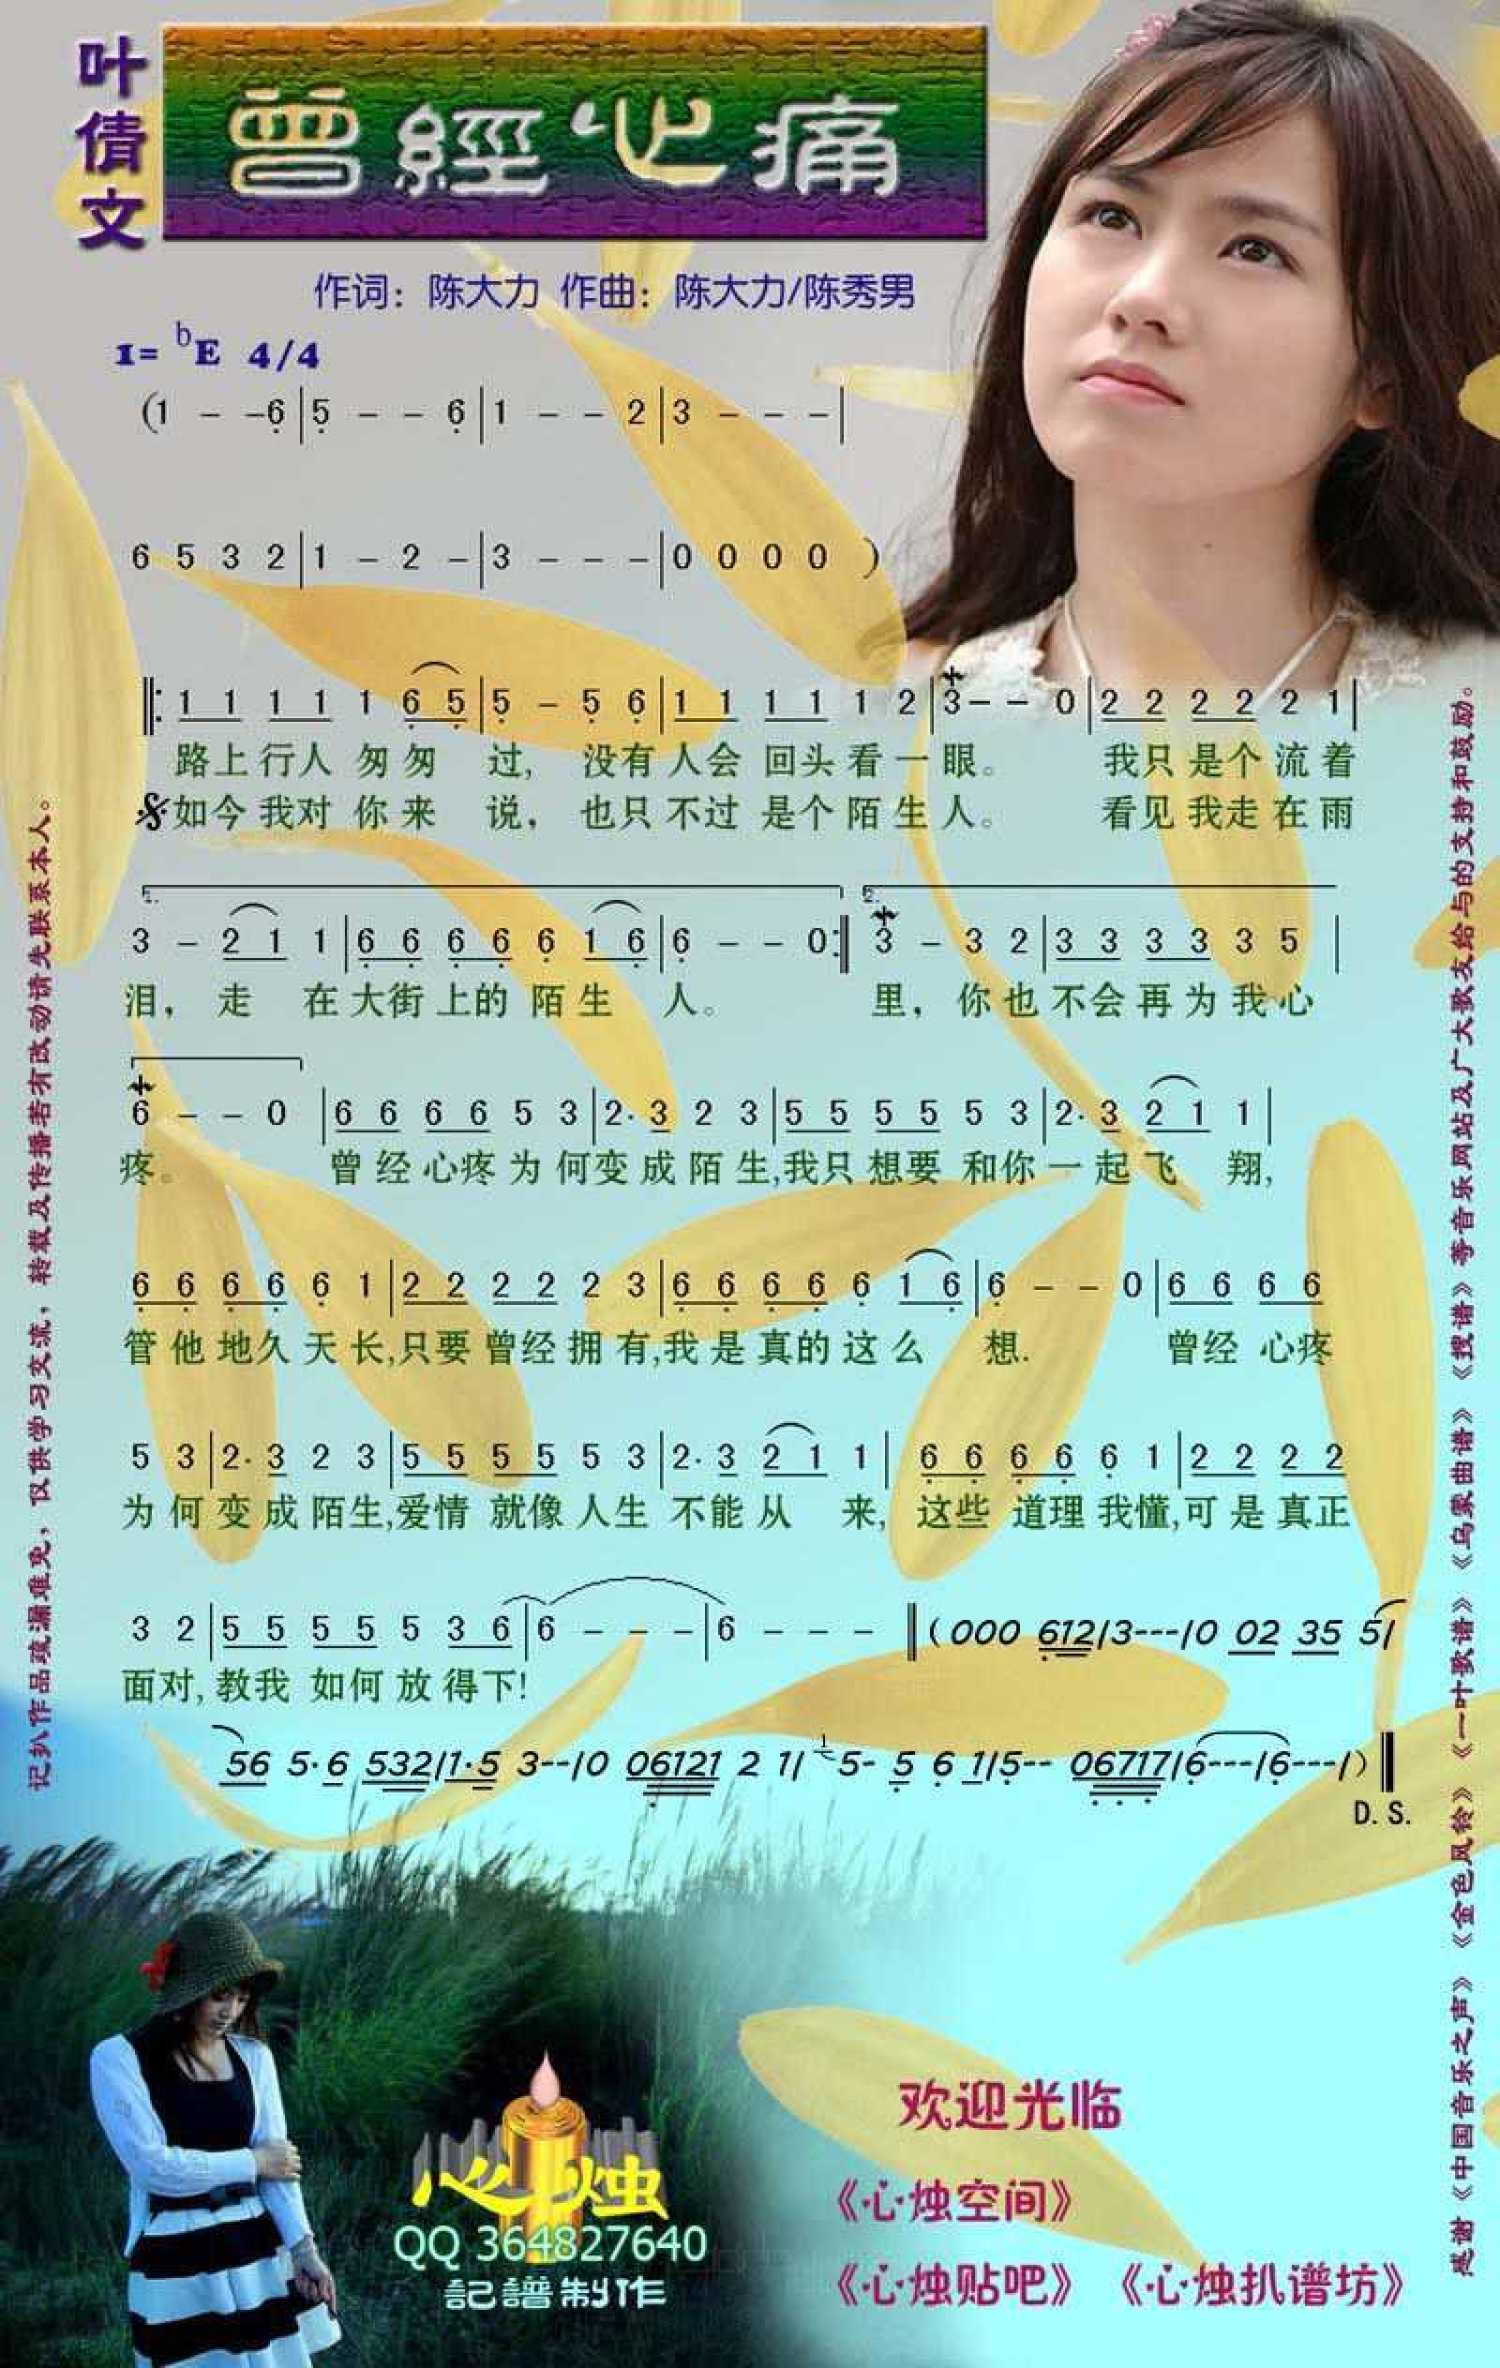 叶倩文
曾經心痛
作词：陈大力 作曲：陈大力/陈秀男
1= bE 4/4
(1 - -6|5 - - 6|1 - - 2|3 - - -|
6 5 3 2|1 - 2 -|3 - - -|0 0 0 0 )
‖: 1 1 1 1 1 6 5|5 - 5 6|1 1 1 1 1 2|3 - - 0|2 2 2 2 2 1|
路上行人匆匆 过, 没有人会回头看一眼。 我只是个流着
如今我对你来 说, 也只不过是个陌生人。 看见我走在雨
1. 2.
3 - 2 1 1|6 6 6 6 6 1 6|6 - - 0:‖3 - 3 2|3 3 3 3 3 5|
泪, 走 在大街上的陌生 人。 里, 你也不会再为我心
6 - - 0|6 6 6 6 5 3|2· 3 2 3|5 5 5 5 5 3|2· 3 2 1 1|
疼。 曾经心疼为何变成陌生,我只想要和你一起飞 翔,
6 6 6 6 6 1|2 2 2 2 2 3|6 6 6 6 6 1 6|6 - - 0|6 6 6 6
管他地久天长,只要曾经拥有,我是真的这么 想. 曾经心疼
5 3|2· 3 2 3|5 5 5 5 5 3|2· 3 2 1 1|6 6 6 6 6 1|2 2 2 2
为何变成陌生,爱情就像人生不能从 来, 这些道理我懂,可是真正
3 2|5 5 5 5 5 3 6|6 - - -|6 - - - ‖(000 612/3---/0 02 35 5/
面对,教我如何放得下!
56 5·6 532/1·5 3--/0 06121 2 1/ 1 5- 5 6 1/5-- 06717/6---/6---/)‖
D.S.
记扒作品疏漏难免，仅供学习交流，转载及传播若有改动请先联系本人。
感谢《中国音乐之声》《金色风铃》《一叶歌谱》《乌蒙曲谱》《搜谱》等音乐网站及广大歌友给与的支持和鼓励。
心烛
QQ 364827640
記譜制作
欢迎光临
《心烛空间》
《心烛贴吧》《心烛扒谱坊》